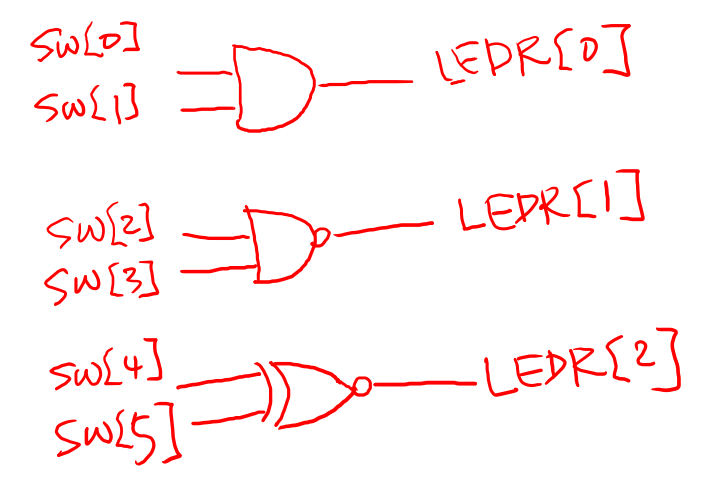 SW[0]
SW[1]
LEDR[0]
SW[2]
SW[3]
LEDR[1]
SW[4]
SW[5]
LEDR[2]